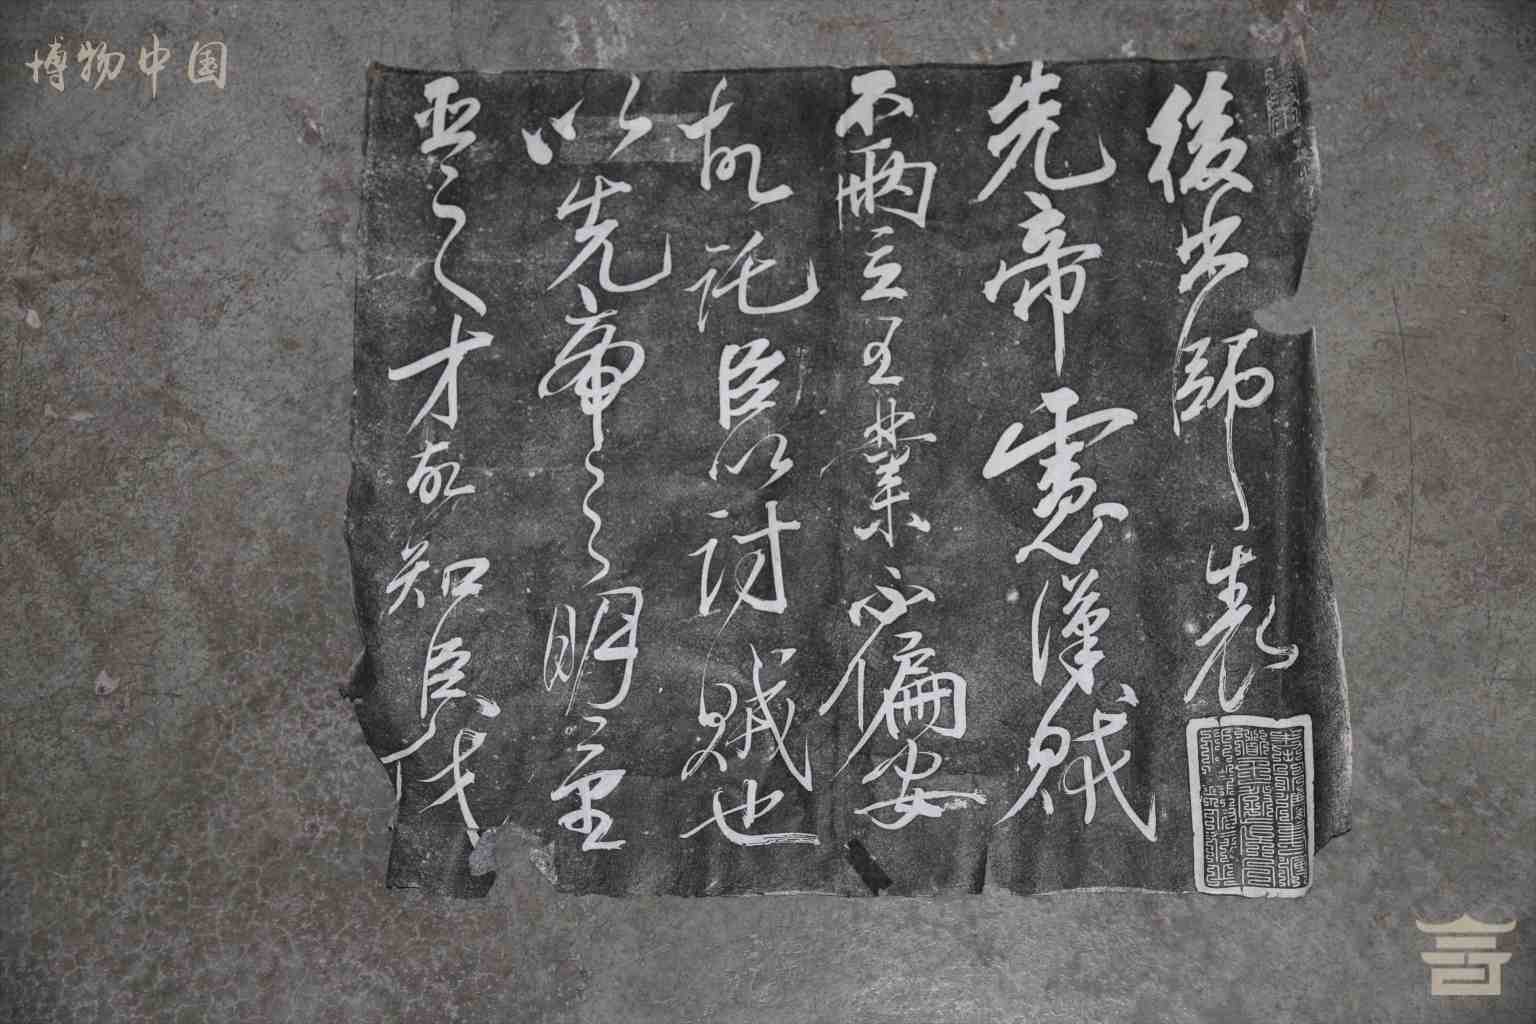 博物中国
後出師表
先帝慮漢賊
不兩立王業不偏安
故託臣以討賊也
以先帝之明量
臣之才故知臣伐